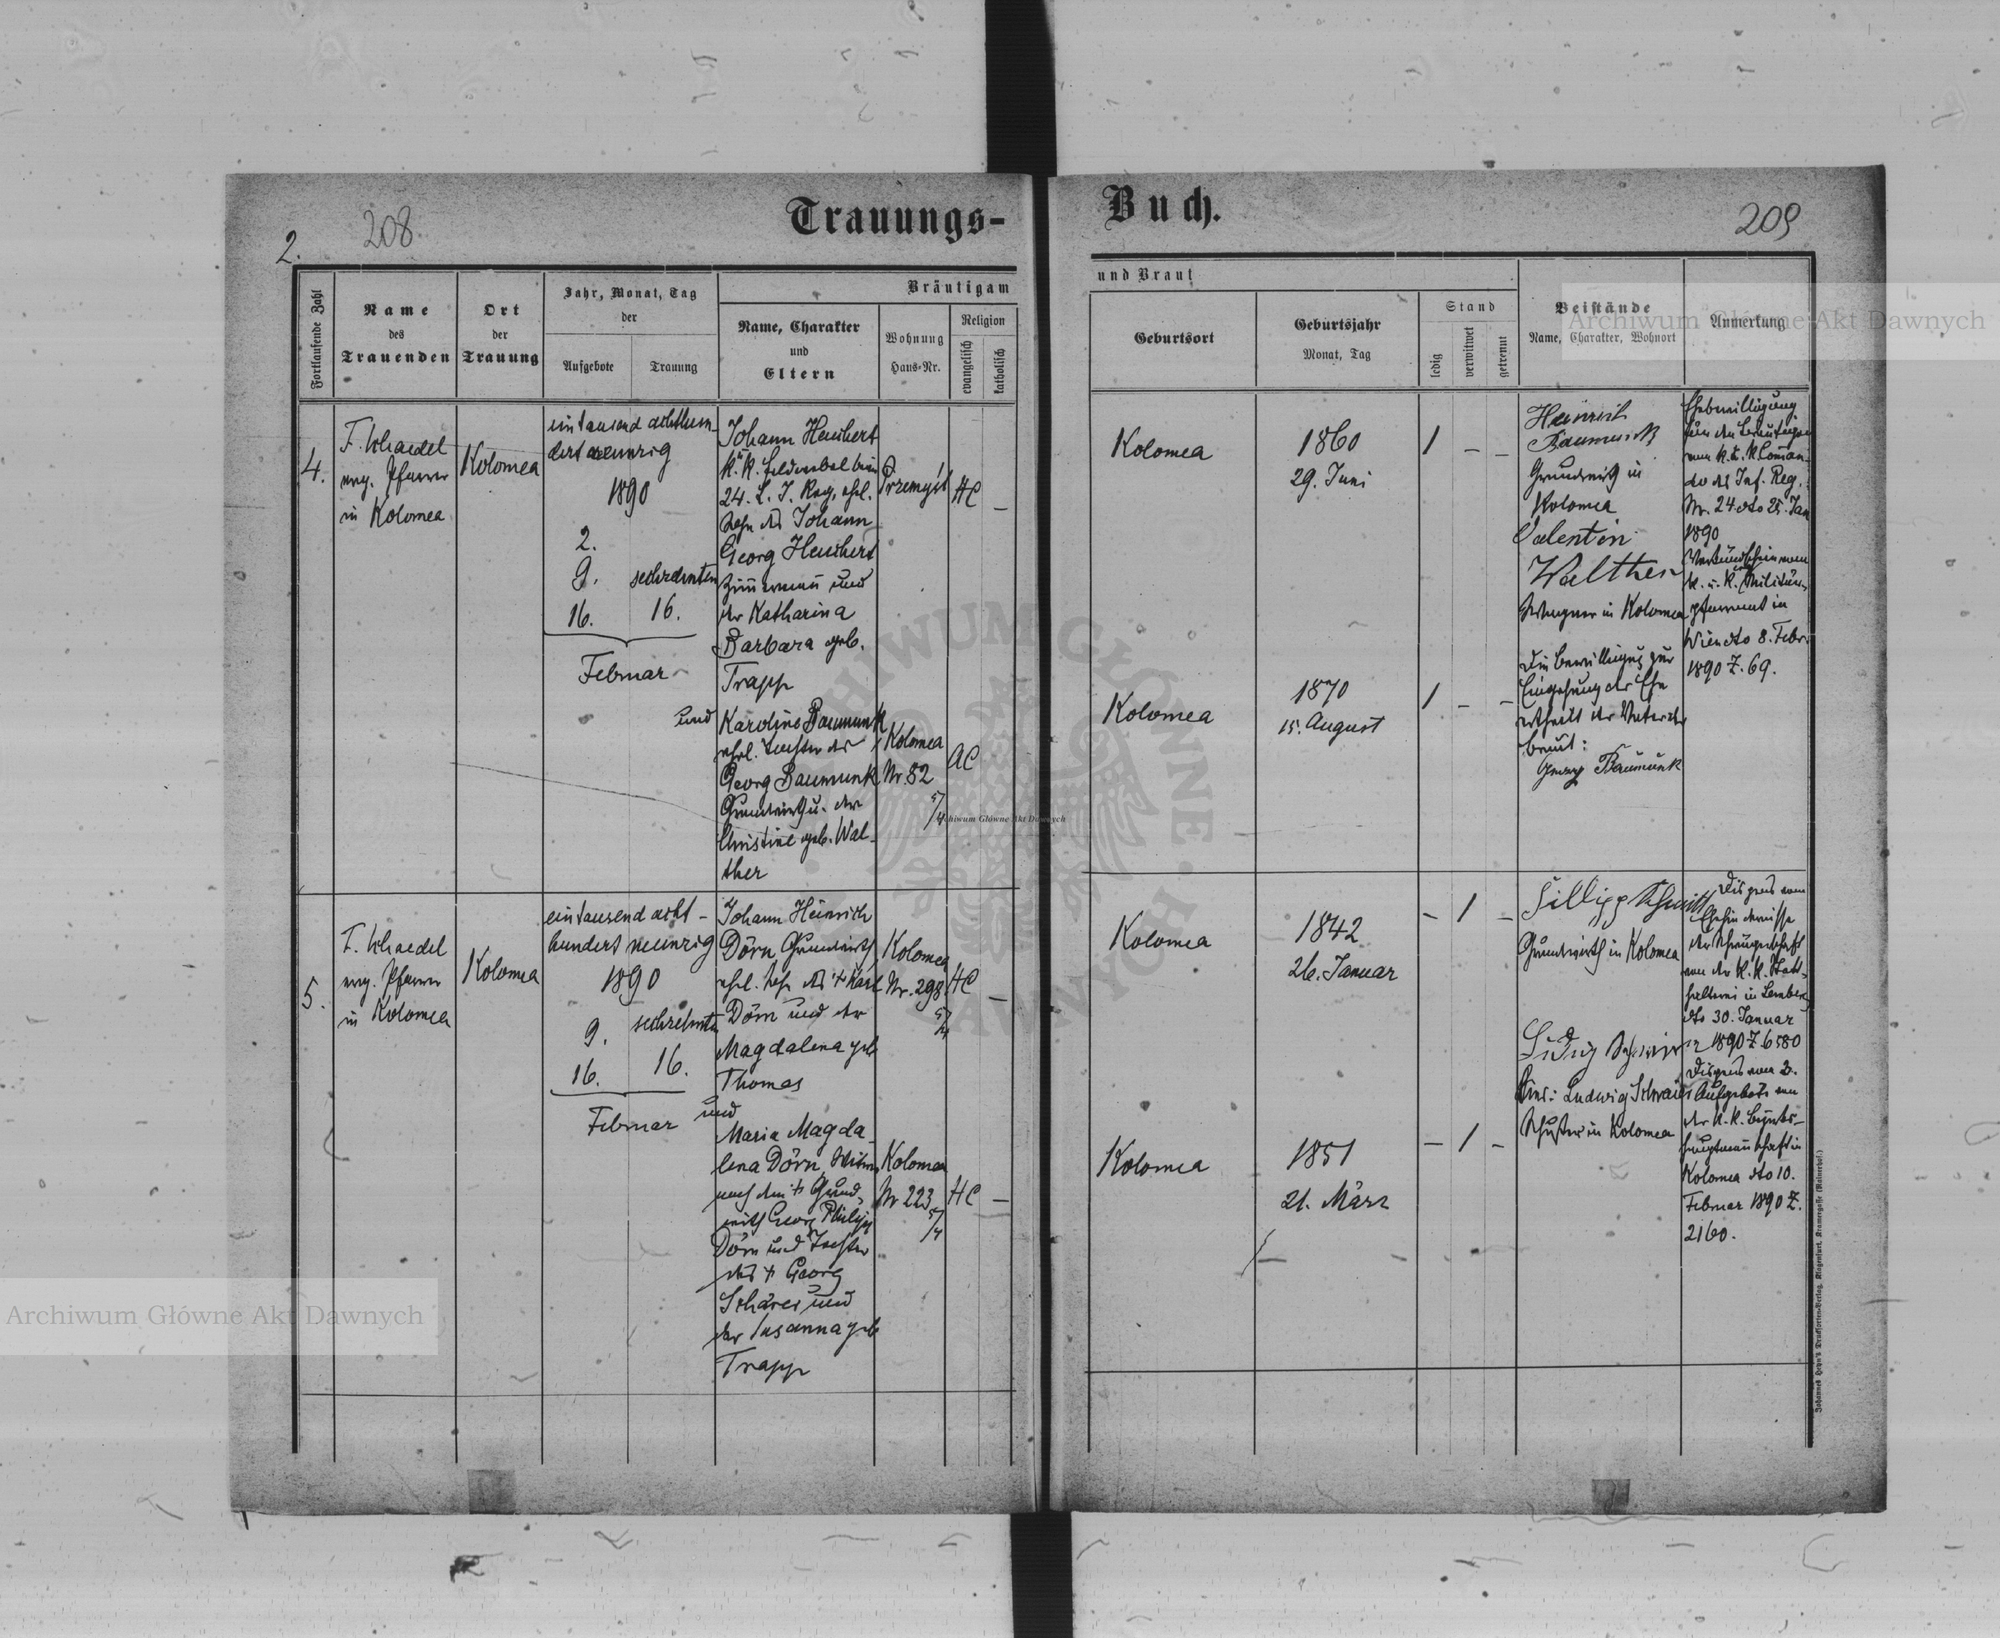 208.
2.
Trauungs-
Buch.
209
Fortlaufende Zahl
Name
des
Trauenden
Ort
der
Trauung
Jahr, Monat, Tag
der
Aufgebote
Trauung
Bräutigam
Name, Charakter
und
Eltern
Wohnung
Haus-Nr.
Religion
evangelisch
katholisch
und Braut
Geburtsort
Geburtsjahr
Monat, Tag
Stand
ledig
verwitwet
getrennt
Beistände
Name, Charakter, Wohnort
Anmerkung
4.
evg. Pfarrer
in Kolomea
Kolomea
eintausend achthun-
dert neunzig
1890
2.
9.
16.
sechzehnten
16.
Februar
Johann Heuchert
k. k. Feldwebel beim
24. L. I. Reg. ehl.
Sohn des Johann
Georg Heuchert
Zimermañ und
der Katharina
Barbara geb.
Trapp
und
Karoline Baumunk
ehel. Tochter des
Georg Baumunk
Grundwirth u. der
Christine geb. Wal-
ther
Przemyśl
HC
–
Kolomea
Nr 82
AC
Kolomea
1860
29. Juni
1
–
–
Kolomea
1870
15. August
1
–
–
Heinrich
Baumunk
Grundwirth in
Kolomea
Valentin
Walther
in Kolomea
Die Bewilligung zur
Eingehung der Ehe
ertheilt der Vater der
Braut:
Georg Baumunk
Ehebewilligung
für den Bräutigam
vom k. u. k. Coman-
do des Inf. Reg.
Nr. 24 dto 25. Jan
1890
Verkündschein vom
k. u. k. Militär-
pfarramt in
Wien dto 8. Febr.
1890 Z. 69.
5.
evg. Pfarrer
in Kolomea
Kolomea
eintausend acht-
hundert neunzig
1890
9.
16.
sechzehnten
16.
Februar
Johann Heinrich
Dörn Grundwirth
ehel. Sohn des + Karl
Dörn und der
Magdalena geb
Thomas
und
Maria Magda-
lena Dörn, Witwe
nach dem + Grund-
wirth Georg Philipp
Dörn und Tochter
des + Georg
Schärer und
der Susanna geb
Trapp
Kolomea
Nr. 298
HC
–
Kolomea
Nr 223
HC
–
Kolomea
1842
26. Januar
–
1
–
Kolomea
1851
21. März
–
1
–
Grundwirth in Kolomea
Ludwig
Schuster in Kolomea
Dispens vom
Ehehindernisse
der Schwägerschaft
von der k. k. Statt-
halterei in Lemberg
dto 30. Januar
1890 Z 6580
Dispens vom 3.
Aufgebote von
der k. k. Bezirks-
hauptmannschaft in
Kolomea dto 10.
Februar 1890 Z.
2160.
Archiwum Główne Akt Dawnych
Archiwum Główne Akt Dawnych
Archiwum Główne Akt Dawnych